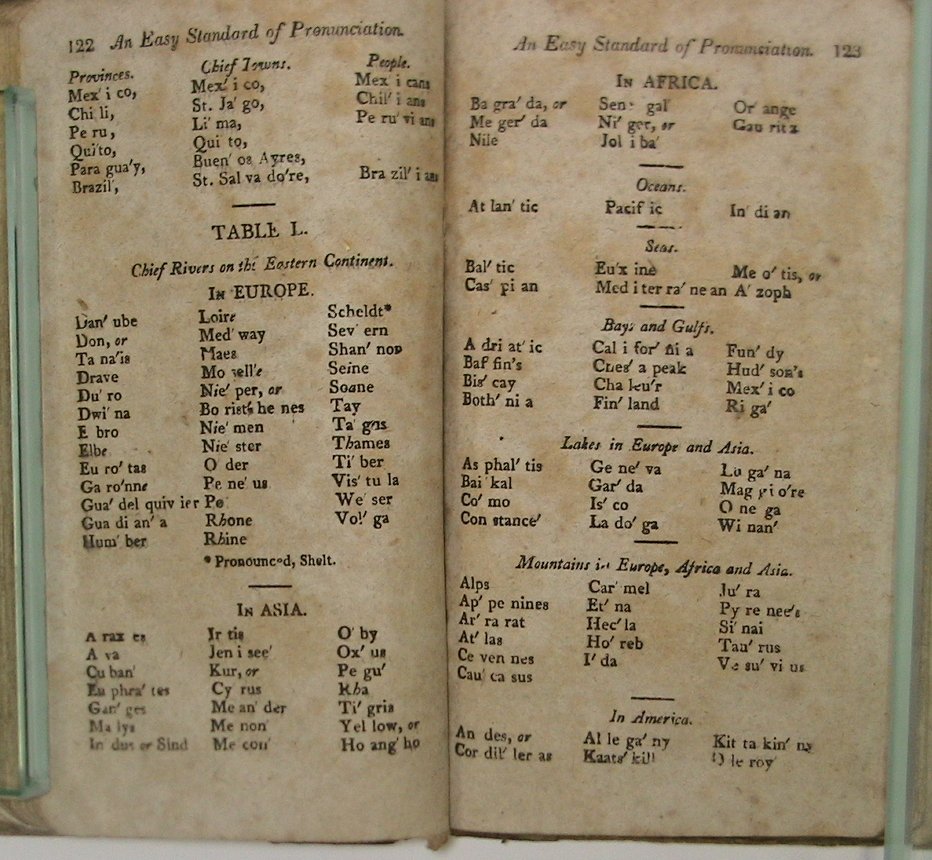 122 An Easy Standard of Pronunciation.
Provinces. Chief Towns. People.
Mex' i co, Mex' i co, Mex i cans
Chi li, St. Ja' go, Chil' i ans
Pe ru, Li' ma, Pe ru' vi ans
Qui'to, Qui to,
Para gua'y, Buen' os Ayres,
Brazil', St. Sal va do're, Bra zil' i ans
TABLE L.
Chief Rivers on the Eastern Continent.
In EUROPE.
Dan' ube Loire Scheldt*
Don, or Med' way Sev' ern
Ta na'is Maes Shan' non
Drave Mo sell'e Seine
Du' ro Nie' per, or Soane
Dwi' na Bo rist' he nes Tay
E bro Nie' men Ta' gus
Elbe Nie' ster Thames
Eu ro' tas O' der Ti' ber
Ga ro'nne Pe ne' us Vis' tu la
Gua' del quiv ier Po We' ser
Gua di an' a Rhone Vol' ga
Hum' ber Rhine
* Pronounced, Shelt.
In ASIA.
A rax es Ir tis O' by
A va Jen i see' Ox' us
Cu ban' Kur, or Pe gu'
Eu phra' tes Cy rus Rha
Gan' ges Me an' der Ti' gris
Ma lys Me non Yel low, or
In dus or Sind Me con' Ho ang' ho
An Easy Standard of Pronunciation. 123
In AFRICA.
Ba gra' da, or Sen e gal' Or ange
Me ger' da Ni' ger, or Gau ritz
Nile Jol i ba'
Oceans.
At lan' tic Pacif ic In' di an
Seas.
Bal' tic Eu'x ine Me o' tis, or
Cas' pi an Med i ter ra' ne an A' zoph
Bays and Gulfs.
A dri at' ic Cal i for' ni a Fun' dy
Baf fin's Ches' a peak Hud' son's
Bis' cay Cha leu'r Mex' i co
Both' ni a Fin' land Ri ga'
Lakes in Europe and Asia.
As phal' tis Ge ne' va Lu ga' na
Bai' kal Gar' da Mag gi o're
Co' mo Is' co O ne ga
Con stance' La do' ga Wi nan'
Mountains in Europe, Africa and Asia.
Alps Car' mel Ju' ra
Ap' pe nines Et' na Py re nee's
Ar' ra rat Hec' la Si' nai
At' las Ho' reb Tau' rus
Ce ven nes I' da Ve su' vi us
Cau' ca sus
In America.
An des, or Al le ga' ny Kit ta kin' ny
Cor dil' ler as Kaats' kill O le roy'